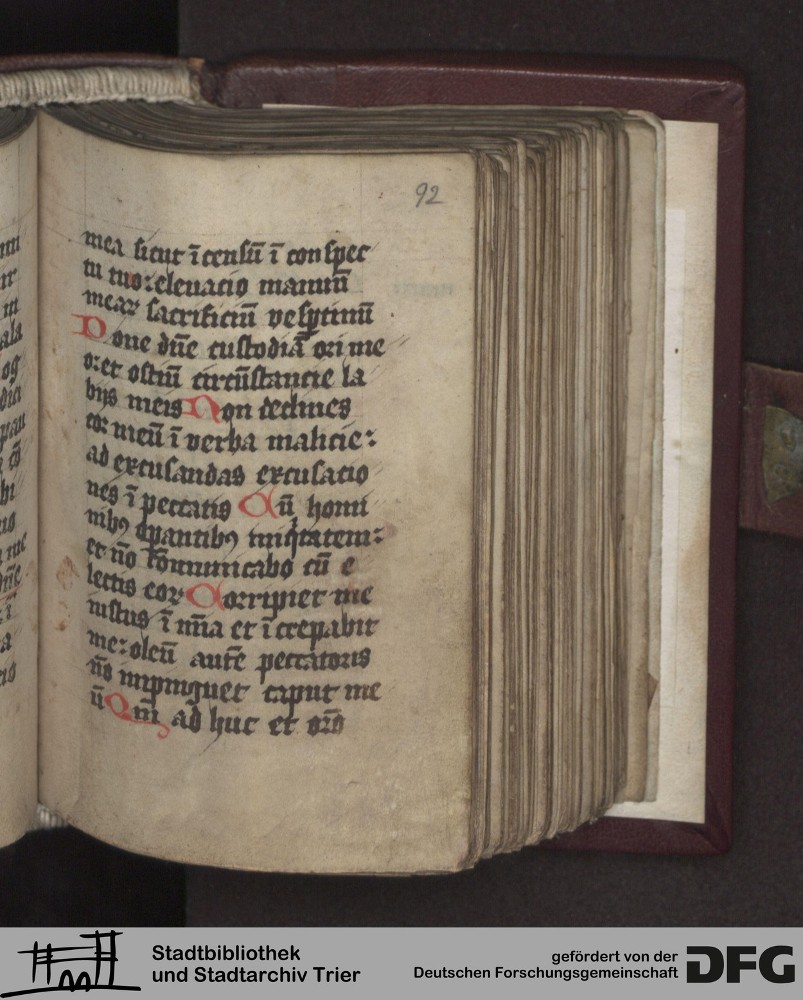 92
mea sicut ĩcensũ ĩ conspec
tu tuo: eleuacio manuũ
meaꝝ sacrificiũ vesꝑtinũ
Pone dñe custodiã ori me
o: et ostiũ circũstancie la
bijs meis Non declines
cor meũ ĩ verba malicie:
ad excusandas excusacio
nes ĩ peccatis Cũ homi
nibꝯ oꝑantibꝯ iniq̃tatem:
et nõ cõmunicabo cũ e
lectis eoꝝ Corripiet me
iustus ĩ mĩa et ĩcrepabit
me: oleũ autẽ peccatoris
nõ impinguet caput me
ũ Qm̃ ad huc et orõ
Stadtbibliothek
und Stadtarchiv Trier
gefördert von der
Deutschen Forschungsgemeinschaft
DFG